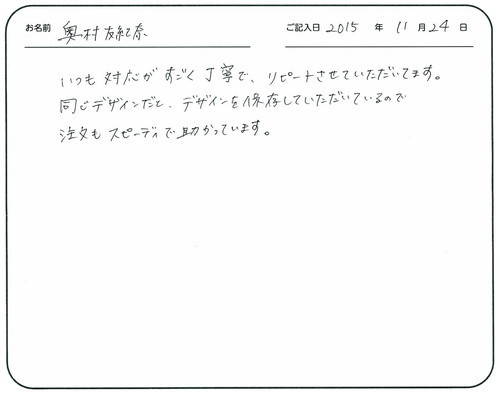 お名前 奥村友紀奈 ご記入日 2015 年 11 月 24 日
いつも対応がすごく丁寧で、リピートさせていただいてます。
同じデザインだと、デザインを保存していただいているので
注文もスピーディで助かっています。